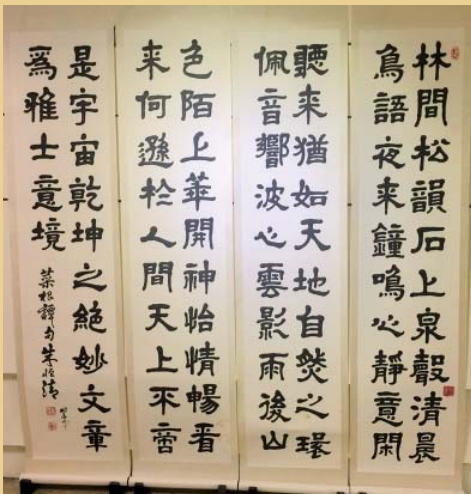 林間松韻石上泉聲清晨
鳥語夜来鐘鳴心靜意閑
聽来猶如天地自然之環
佩音響波心雲影雨後山
色陌上華開神怡情暢看
来何遜於人間天上不啻
是宇宙乾坤之絕妙文章
爲雅士意境
菜根譚句朱恒清